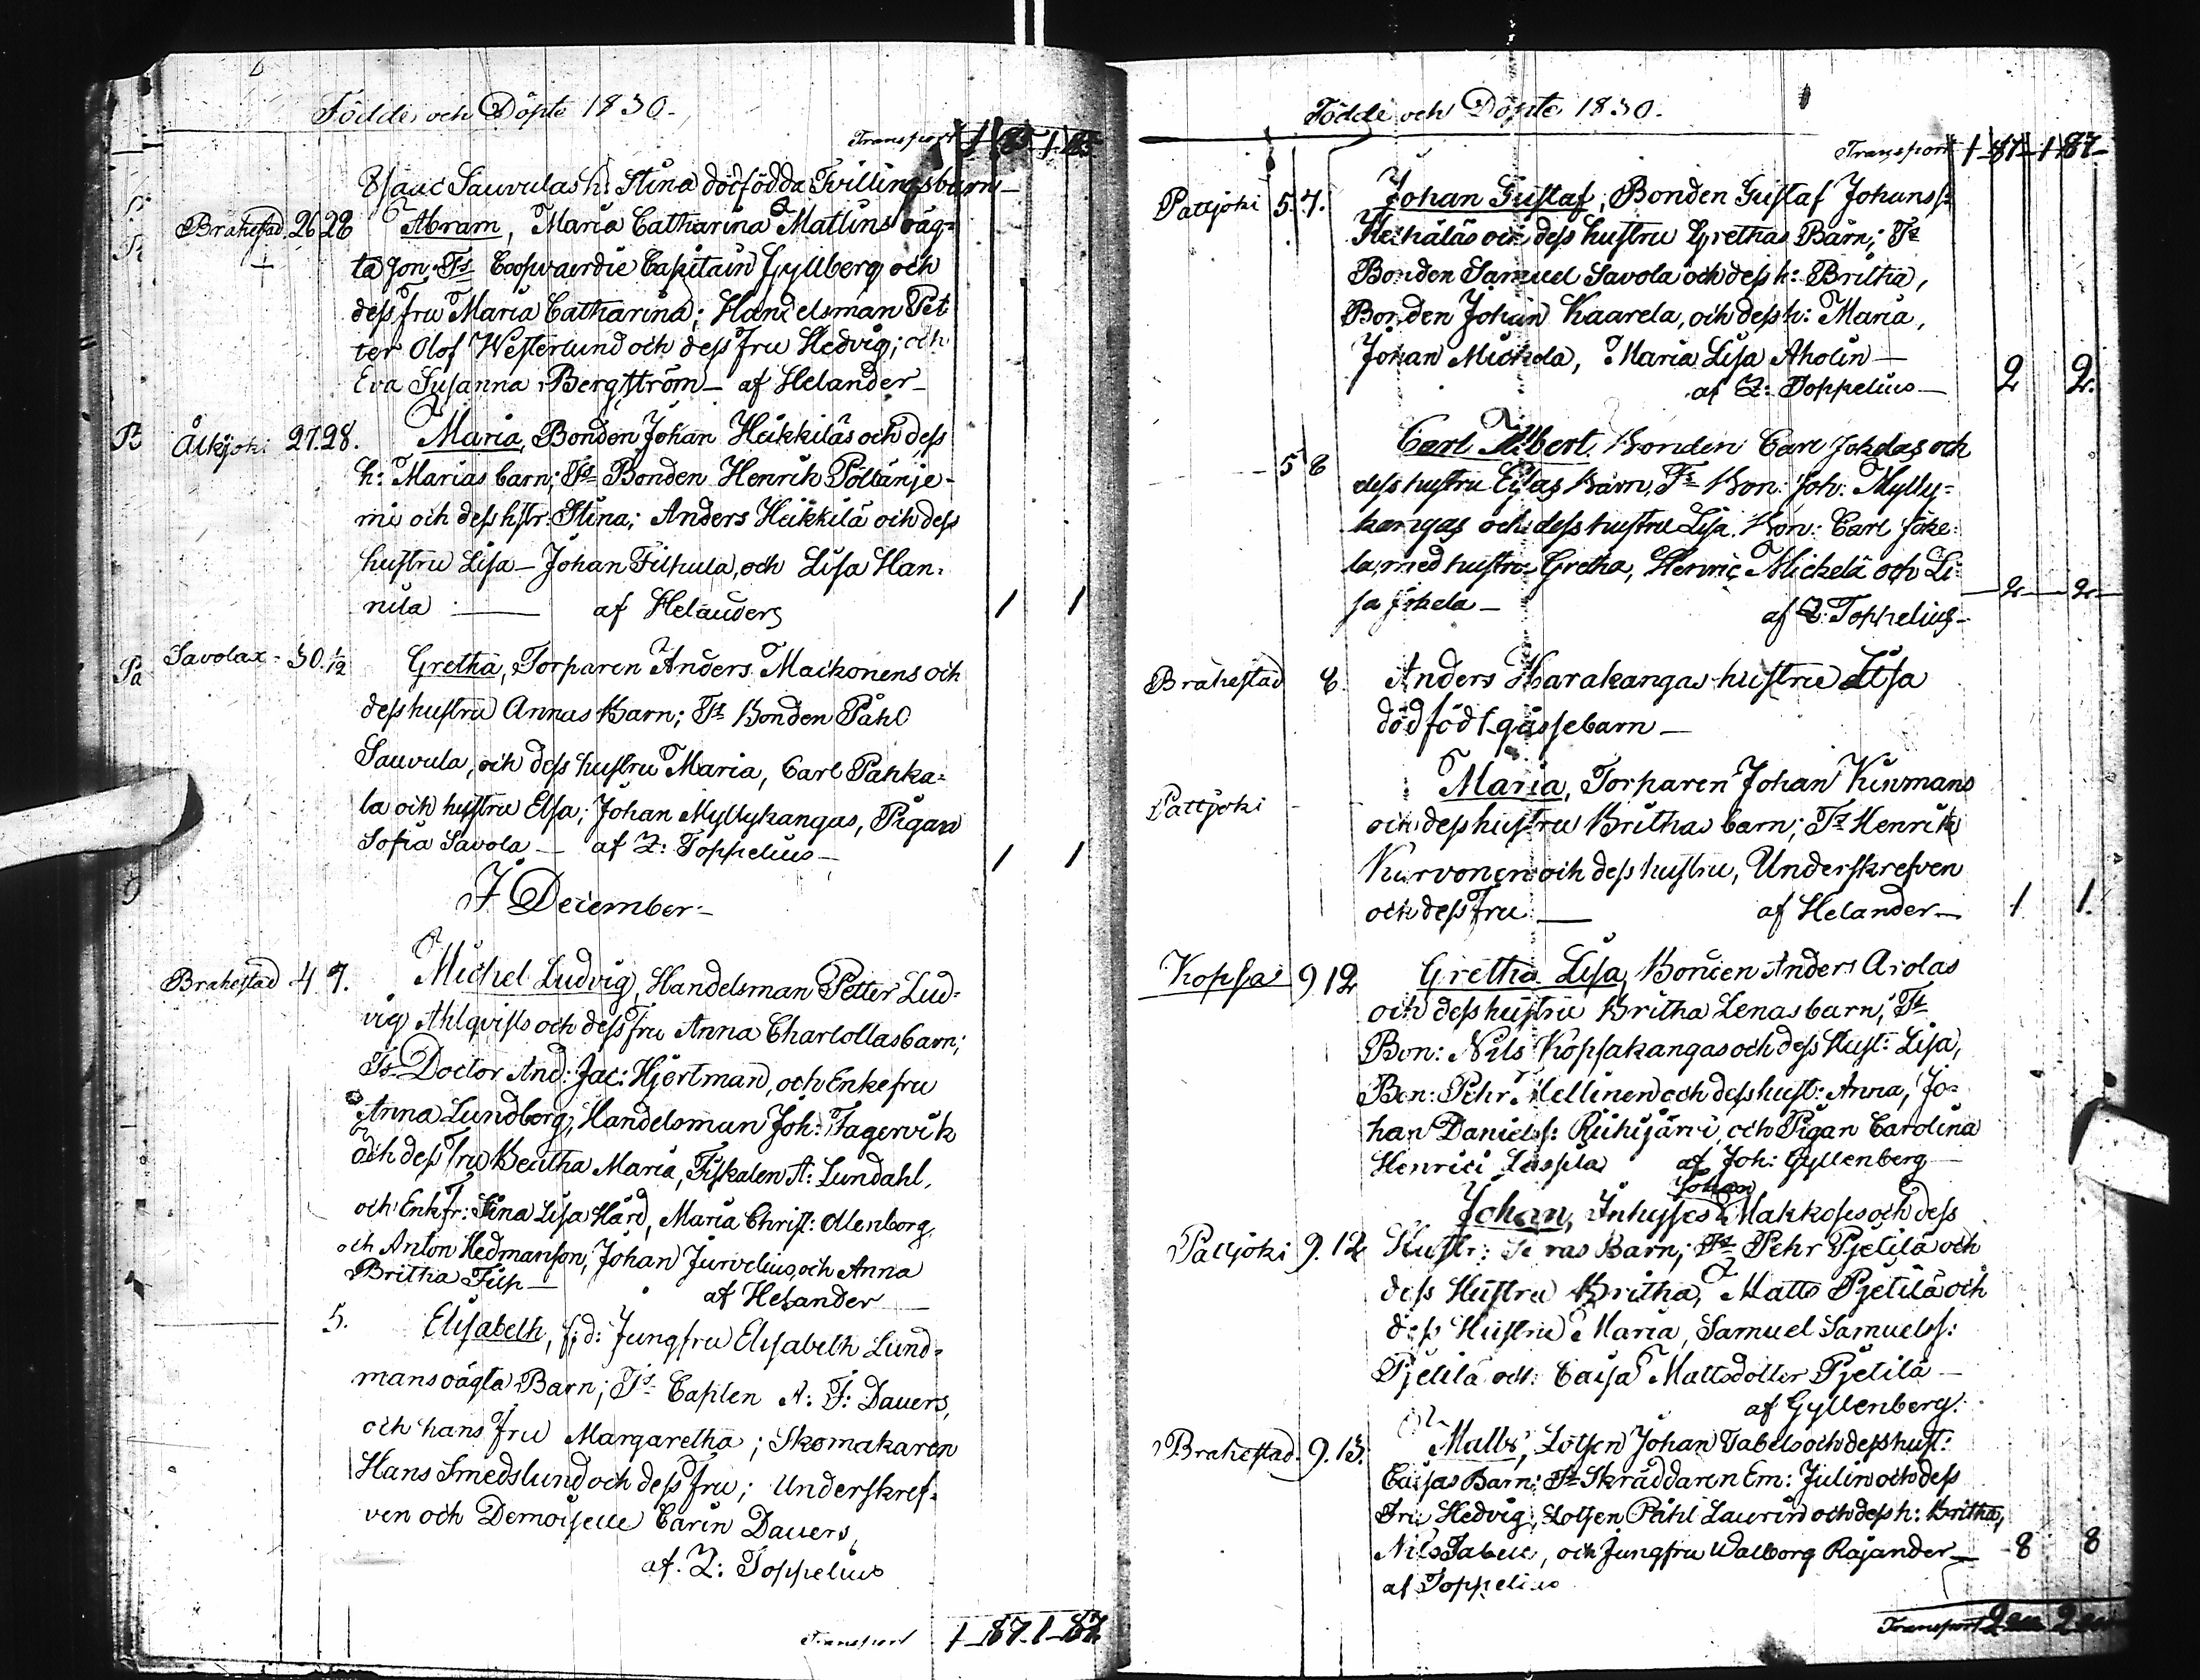 Födde och Döpte 1830.
Transport 1 85 1 85
Isaac Sauvulas h: Stina dödfödda Tvillingsbarn
Brahestad 26 28 Abram, Maria Catharina Matlins oäg-
ta son; Ts Coopvaerdie Capitain Gyllberg och
dess fru Maria Catharina; Handelsman Pet
ter Olof Westerlund och dess fru Hedvig; och
Eva Susanna Bergström — af Helander
Olkjoki 27. 28. Maria, Bonden Johan Heikkiläs och dess
h: Marias barn; Ts Bonden Henrik Pöllänje-
mi och dess hstr: Stina; Anders Heikkilä och dess
hustru Lisa — Johan Filpula, och Lisa Han-
nila — af Helander 1 1
Savolax 30. 1/12 Gretha, Torparen Anders Maikonens och
dess hustru Annas Barn; Ts Bonden Påhl
Sauvula, och dess hustru Maria, Carl Pahka-
la och hustru Elsa; Johan Myllykangas, Pigan
Sofia Savola — af Z: Toppelius — 1 1
I December
Brahestad 4 7. Michel Ludvig, Handelsman Petter Lud-
vig Ahlqvists och dess fru Anna Charlottas barn;
Ts Doctor And: Jac: Hjertman, och Enkefru
Anna Lundborg, Handelsman Joh: Fagervik
och dess fru Beatha Maria, Fiskalen A: Lundahl,
och Enkfr: Stina Lisa Hård, Maria Christ: Ollenborg,
och Anton Hedmanson, Johan Jurvelius, och Anna
Britha Filp — af Helander
5. Elisabeth, f.d: Jungfru Elisabeth Lund-
mans oägta Barn; Ts Caplen A: F: Dauers,
och hans fru Margaretha; Skomakaren
Hans Smedslund och dess fru; Underskref-
ven och Demoiselle Carin Dauers,
af. Z: Toppelius
Transport 1 87 1 87
Födde och Döpte 1830.
Transport 1 87 1 87
Pattjoki 5. 7. Johan Gustaf, Bonden Gustaf Johanss:
och dess hustru Grethas Barn; Ts
Bonden Samuel Savola och dess h: Britha,
Bonden Johan Kaarela, och dess h: Maria,
Johan Mickola, Maria Lisa Aholin —
af Z: Toppelius — 2 2.
5 8 Carl Albert, Bonden Carl Jokelas och
dess hustru Barn, Ts Bon: Joh: Mylly-
kangas och dess hustru Lisa. Bon: Carl Joke-
la, med hustru Gretha, Henric Mickelä och Li-
sa Jokela — af Z: Toppelius — 2 2
Brahestad 8. Anders Harakangas hustru Lisa
dödfödt gåssebarn —
Pattjoki Maria, Torparen Johan
och dess hustru Brithas barn; Ts Henrik
Kurvonen och dess hustru, Underskrefven
och dess fru — af Helander — 1 1.
Kopsa 9 12 Gretha Lisa, Bonden Anders Arolas
och dess hustru Britha Lenas barn; Ts
Bon: Nils Kopsakangas och dess Hust: Lisa,
Bon: Pehr Mellinen och dess hust: Anna, Jo-
han Daniels: Riihijärvi, och Pigan Carolina
Henrici Laspila af Joh: Gyllenberg
Johan
Pattjoki 9. 12 Johan, Inhyses Makkoses och dess
Hustr: Barn; Ts Pehr Pjetilä och
dess Hustru Britha, Matts Pjetilä och
dess Hustru Maria, Samuel Samuels:
Pjetilä och Caisa Mattsdotter Pjetilä —
af Gyllenberg.
Brahestad. 9. 13. Matts, Lotsen Johan Tabels och dess hust:
Caisas Barn; Ts Skräddaren Em: Julin och dess
Fru Hedvig, Lotsen Påhl Laurin och dess h: Britha,
Nils Tabell, och Jungfru Walborg Rajander — 8 8
af Toppelius
Transport